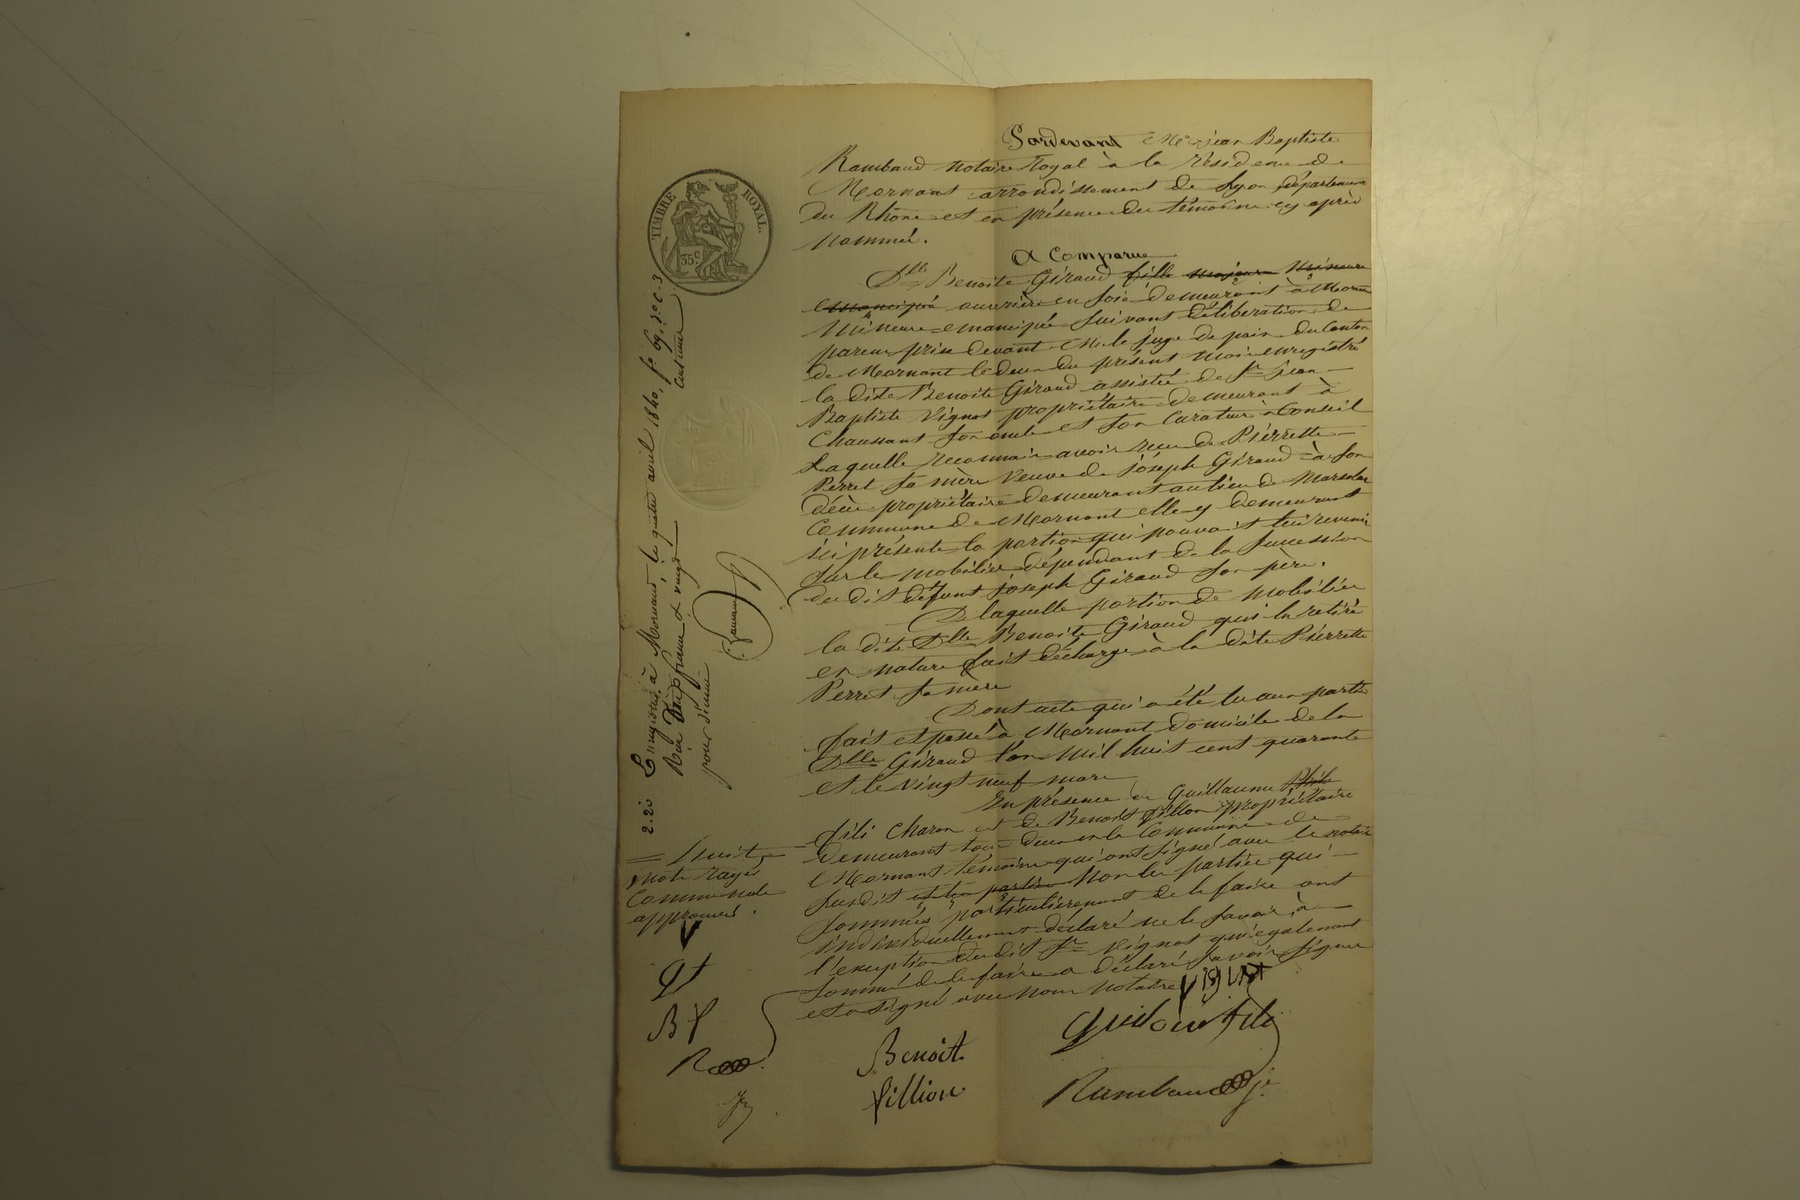 Pardevant Me jean Baptiste
Rambaud notaire Royal à la résidence de
Mornant arrondissement de Lyon département
du Rhône et en présence des témoins cy après
nommés.
A Comparue
Dlle Benoite Giraud fille majeure Mineure
émancipée ouvrière en soie demeurant à Mornant
Mineure émancipée suivant délibération de
parens prise devant M. le juge de paix du Canton
de Mornant le deux du présent mois enregistré
la dite Benoite Giraud assistée de Sr jean
Baptiste Vignat propriétaire demeurant à
Chaussant son oncle et son Curateur à Conseil
Laquelle reconnait avoir reçu de Pierrette
Perret sa mère Veuve de joseph Giraud à son
décès propriétaire demeurant au lieu de
Commune de Mornant elle y demeurant
ici présente la portion qui pouvait lui revenir
sur le mobilier dépendant de la succession
du dit défunt joseph Giraud son père.
De laquelle portion de mobilier
la dite Dlle Benoite Giraud qui l'a retiré
en nature fait décharge à la dite Pierrette
Perret sa mère
Dont acte qui a été lu aux parties
fait et passé à Mornant domicile de la
Dlle Giraud l'an Mil huit cent quarante
et le vingt neuf mars
En présence de Guillaume
fils Charon et de Benoit fillion propriétaire
demeurant tous deux en la Commune de
Mornant témoins qui ont signé avec le notaire
susdit et les parties Non les parties qui
sommées particulièrement de le faire ont
individuellement déclaré ne le savoir, à
l'exception du dit Sr Vignat qui également
sommé de le faire a déclaré savoir signer
et a signé avec nous notaire
Vignat
Benoit
fillion
fils
Rambaud
TIMBRE ROYAL.
35c.
Enregistré à Mornant le quatre avril 1840, fo 69. Vo C. 3
Reçu deux francs & vingt
centimes
pour décime
2.20
Huit
Mots rayés
Comme nuls
approuvés.
V
gf
Bf
R